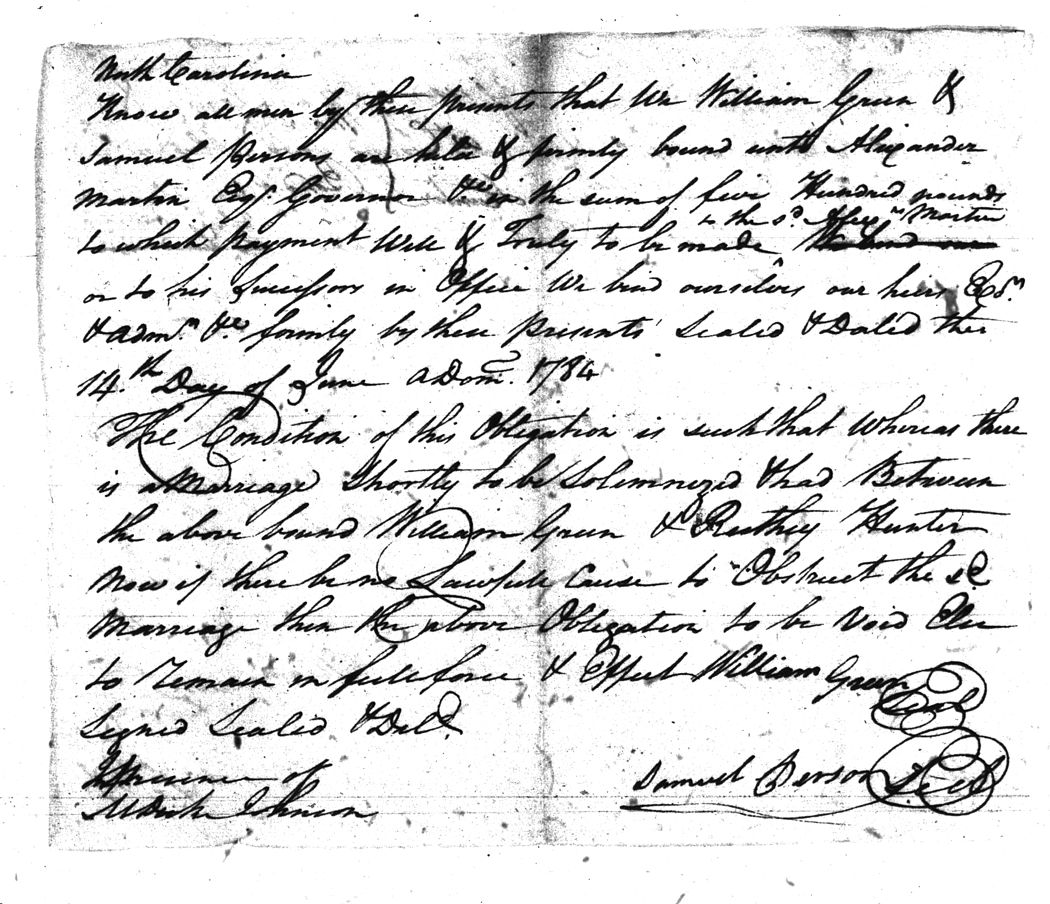 North Carolina
Know all men by these presents that We William Green &
Samuel Persons are held & firmly bound unto Alexander
Martin Esqr. Governor &c in the sum of five Hundred pounds
to the sd. Alexr. Martin
to which payment Well & Truly to be made We bind our
or to his Successors in Office We bind ourselves our heirs Exrs.
& admrs. &c. firmly by these presents Sealed & Dated this
14th. Day of June ADom. 1784
The Condition of this Obligation is such that Whereas there
is a Marriage Shortly to be Solemnized & had Between
the above bound William Green & Ruthey Hunter
Now if there be no Lawfull Cause to Obstruct the sd
Marriage then the above Obligation to be Void Else
to Remain in full force & Effect William Green Seal
Signed Sealed & Deld.
In presence of
Samuel Person Seal
Johnson